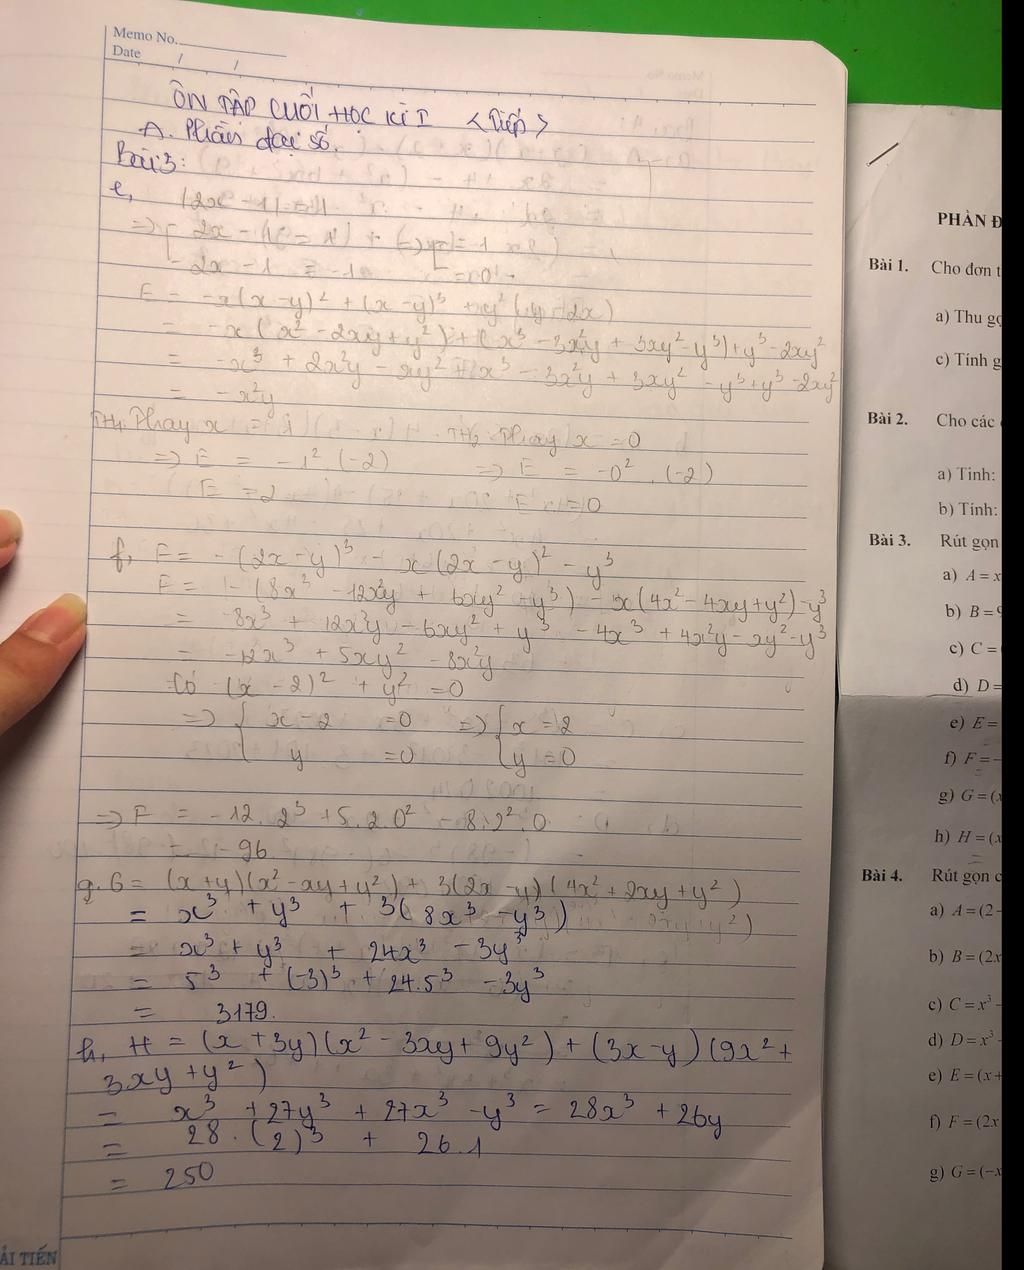 Memo No.
Date / /
ÔN TẬP CUỐI HỌC KÌ I <Tiếp>
A. Phần đại số.
Bài 3:
e,
2x - 1 = -1
E = -x(x-y)² + (x-y)³ + y²(y-2x)
= -x(x² - 2xy + y²) + (x³ - 3x²y + 3xy² - y³) + y³ - 2xy²
= -x³ + 2x²y - xy² + x³ - 3x²y + 3xy² - y³ + y³ - 2xy²
= -x²y
TH1. Thay x = 1 TH2 Thay x = 0
=> E = -1².(-2) => E = -0².(-2)
E = 2 E = 0
f, F = -(2x-y)³ - x(2x-y)² - y³
F = -(8x³ - 12x²y + 6xy² - y³) - x(4x² - 4xy + y²) - y³
= -8x³ + 12x²y - 6xy² + y³ - 4x³ + 4x²y - xy² - y³
= -12x³ + 5xy² - 8x²y
Có (x - 2)² + y² = 0
=> { x - 2 = 0 => { x = 2
y = 0 y = 0
=> F = -12.2³ + 5.2.0² - 8.2².0
= -96
g. G = (x+y)(x² - xy + y²) + 3(2x-y)(4x² + 2xy + y²)
= x³ + y³ + 3(8x³ - y³)
= x³ + y³ + 24x³ - 3y³
= 5³ + (-3)³ + 24.5³ - 3y³
= 3179.
h, H = (x + 3y)(x² - 3xy + 9y²) + (3x-y)(9x² +
3xy + y²)
= x³ + 27y³ + 27x³ - y³ = 28x³ + 26y
= 28.(2)³ + 26.1
= 250
ẢI TIẾN
PHẦN Đ
Bài 1. Cho đơn t
a) Thu gọ
c) Tính g
Bài 2. Cho các
a) Tính:
b) Tính:
Bài 3. Rút gọn
a) A = x
b) B =
c) C =
d) D =
e) E =
f) F = -
g) G = (x
h) H = (x
Bài 4. Rút gọn c
a) A = (2 -
b) B = (2x
c) C = x³ -
d) D = x³ -
e) E = (x +
f) F = (2x
g) G = (-x